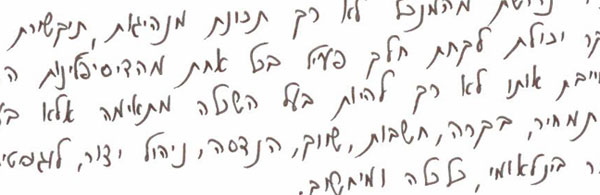 נדרשת מהמנכל לא רק תכונות מנהיגות, תיקשורת
יכולת לקחת חלק פעיל בכל אחת מהדיסיפלינות
אותו לא רק להיות בעל השכלה מתאימה אלא
תמחיר, בקרה, חשבות, שווק, הנדסה, ניהול יצור, לוגסטי
בינלאומי, כלכלה ומיחשוב.